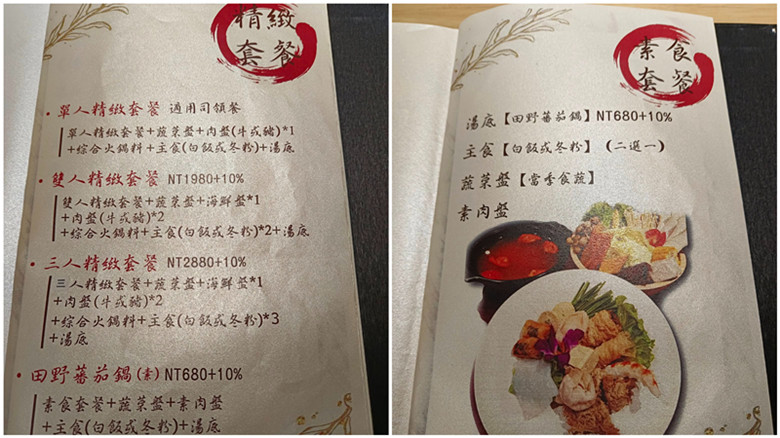 精緻
套餐
• 單人精緻套餐 適用司領餐
單人精緻套餐+蔬菜盤+肉盤(牛或豬)*1
+綜合火鍋料+主食(白飯或冬粉)+湯底
• 雙人精緻套餐 NT1980+10%
雙人精緻套餐+蔬菜盤+海鮮盤*1
+肉盤(牛或豬)*2
+綜合火鍋料+主食(白飯或冬粉)*2+湯底
• 三人精緻套餐 NT2880+10%
三人精緻套餐+蔬菜盤+海鮮盤*1
+肉盤(牛或豬)*2
+綜合火鍋料+主食(白飯或冬粉)*3
+湯底
• 田野蕃茄鍋(素) NT680+10%
素食套餐+蔬菜盤+素肉盤
+主食(白飯或冬粉)+湯底
素食
套餐
湯底【田野蕃茄鍋】NT680+10%
主食【白飯或冬粉】(二選一)
蔬菜盤【當季食蔬】
素肉盤